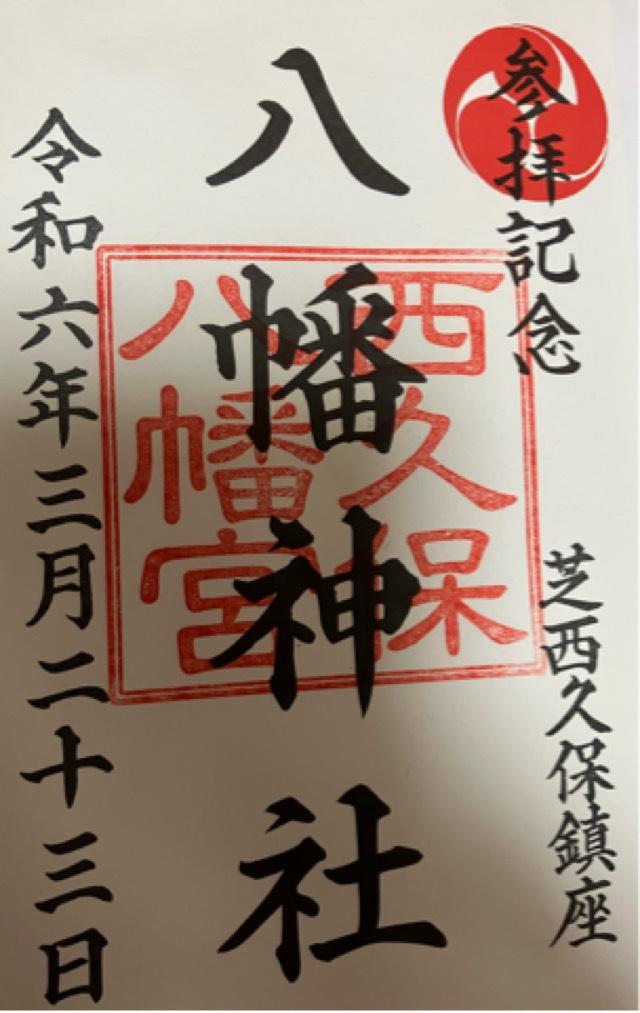 参拝記念
芝西久保鎮座
八幡神社
西久保
八幡宮
令和六年三月二十三日